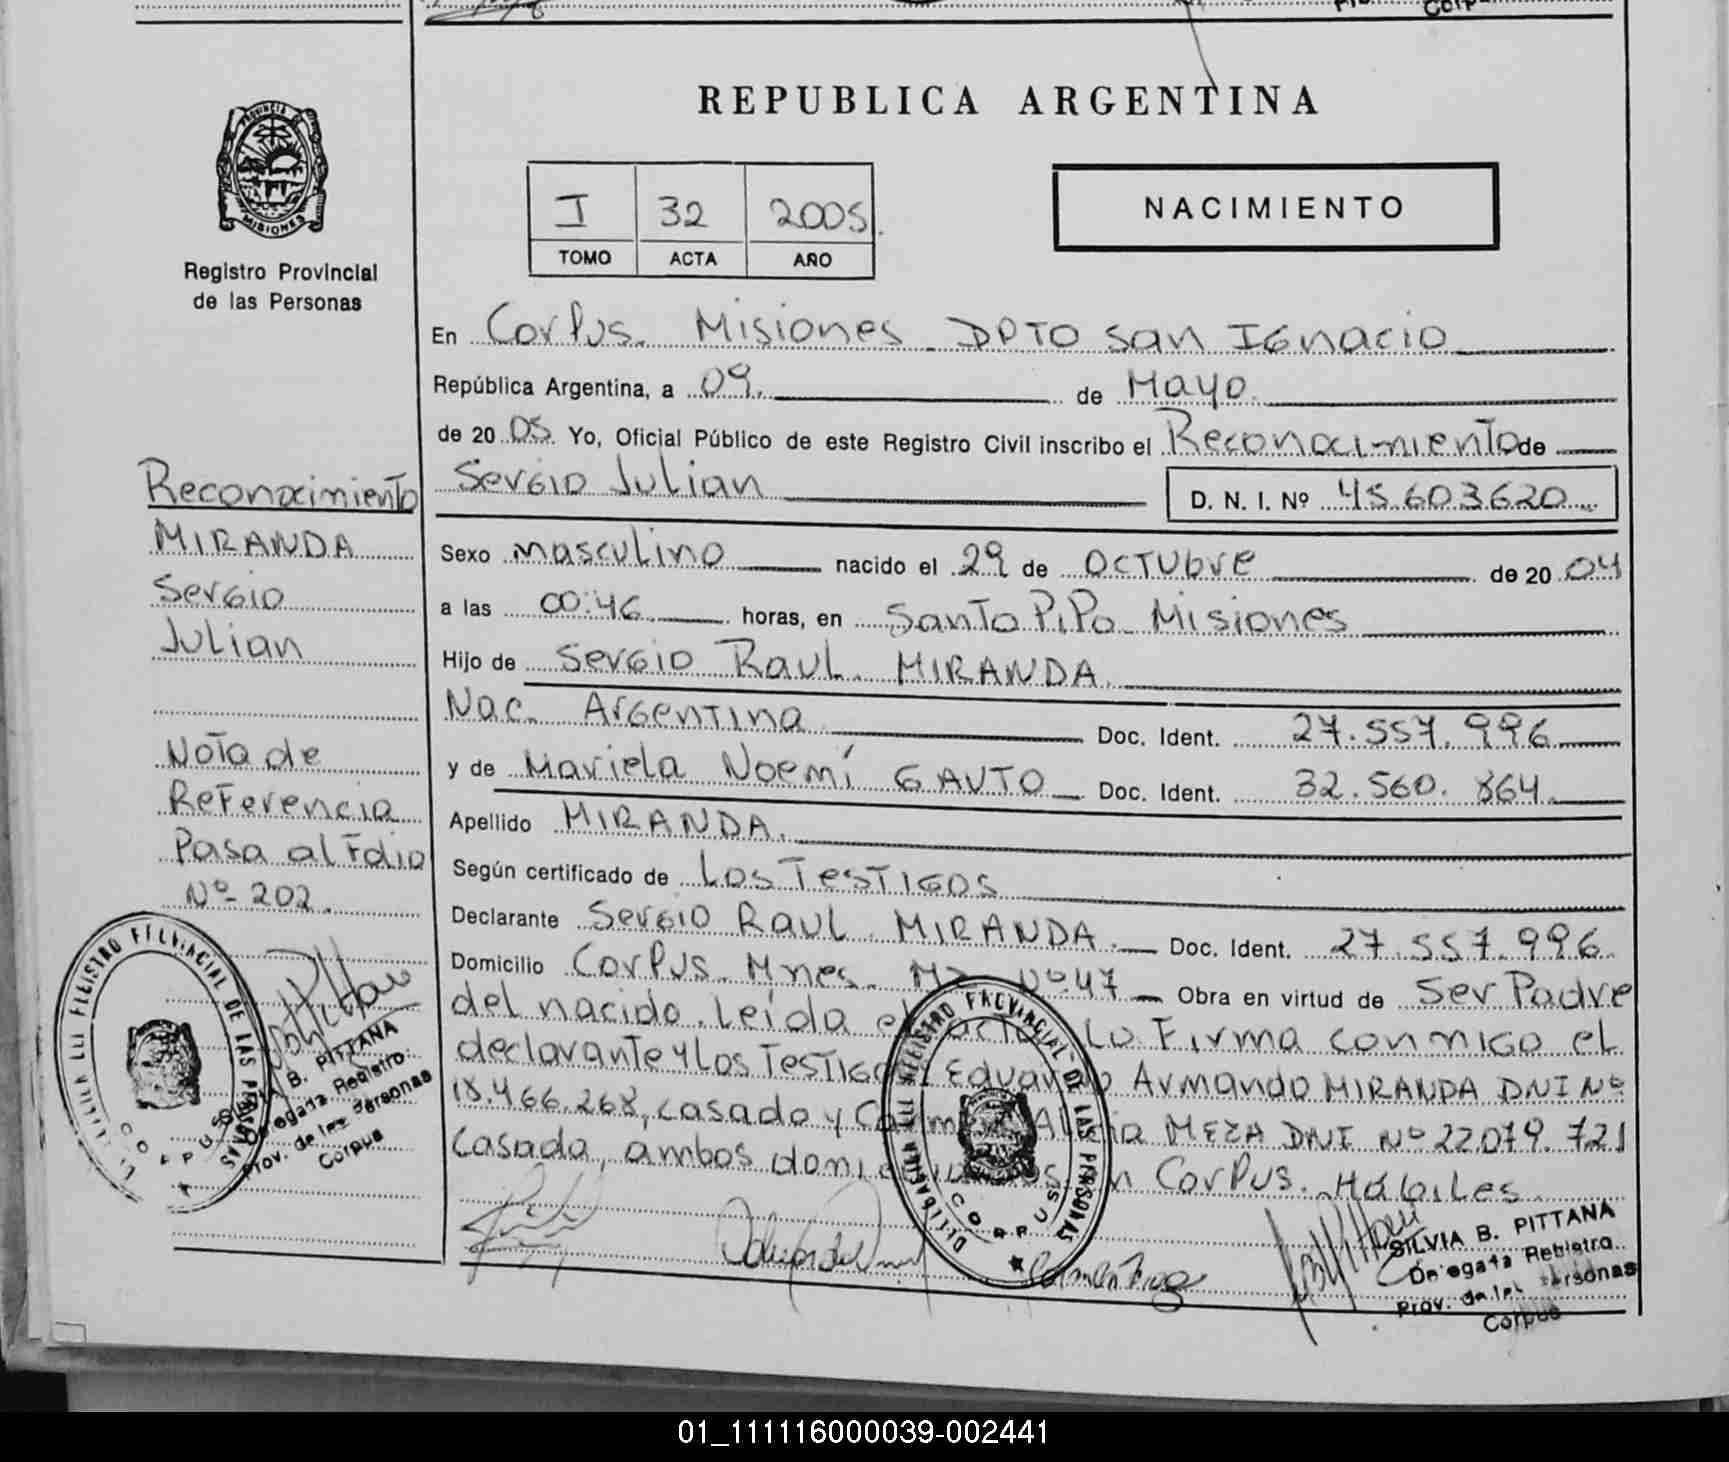 REPUBLICA ARGENTINA
PROVINCIA DE
MISIONES
Registro Provincial
de las Personas
I 32 2005.
TOMO ACTA AÑO
NACIMIENTO
En Corpus. Misiones DPTO San Ignacio
República Argentina, a 09. de Mayo.
de 20 05. Yo, Oficial Público de este Registro Civil inscribo el Reconocimiento de
Sergio Julian D. N. I. Nº 45.603620
Sexo masculino nacido el 29 de OCTubre de 20 04
a las 00:46 horas, en Santo Pipo Misiones
Hijo de Sergio Raul MIRANDA.
Nac. Argentina Doc. Ident. 27.557.996
y de Mariela Noemí GAUTO Doc. Ident. 32.560.864.
Apellido MIRANDA.
Según certificado de Los Testigos
Declarante Sergio Raul MIRANDA. Doc. Ident. 27.557.996.
Domicilio Corpus. Mnes. Mz Nº 47 Obra en virtud de Ser Padre
del nacido. Leída el acta Lo Firma conmigo el
declarante y Los Testigos Eduardo Armando MIRANDA DNI Nº
18.466.268, casado y Alicia MEZA DNI Nº 22079.721
casada, ambos domiciliados en Corpus. Hábiles.
Reconocimiento
MIRANDA
Sergio
Julian
Nota de
Referencia
Pasa al Folio
Nº 202.
REGISTRO PROVINCIAL DE LAS PERSONAS
CORPUS
B. PITTANA
Delegada Registro
Prov. de las Personas
Corpus
DELEGACION REGISTRO PROVINCIAL DE LAS PERSONAS
CORPUS
SILVIA B. PITTANA
Delegada Registro
Prov. de las Personas
Corpus
01_111116000039-002441